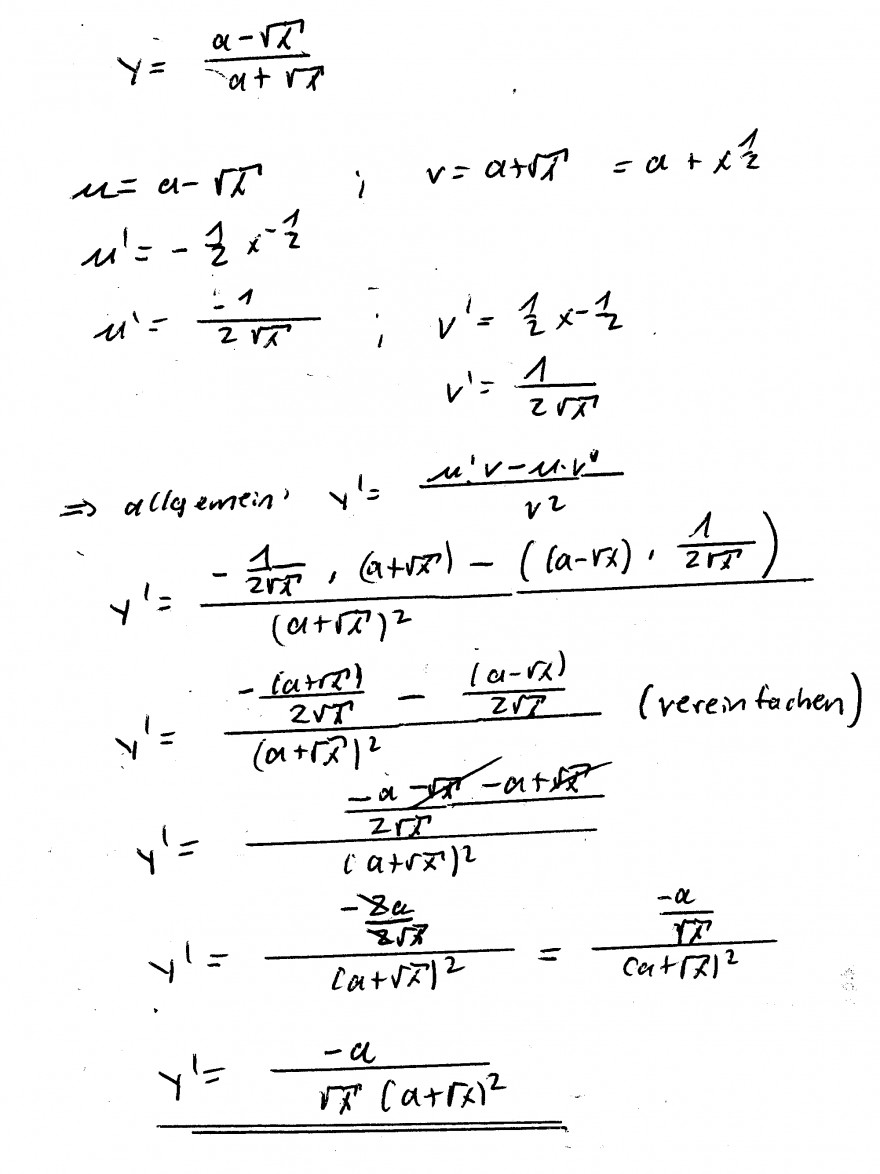 y = (a - √x) / (a + √x)
u = a - √x ; v = a + √x = a + x^(1/2)
u' = - 1/2 x^(-1/2)
u' = -1 / (2√x) ; v' = 1/2 x^(-1/2)
v' = 1 / (2√x)
⇒ allgemein: y' = (u'v - u·v') / v²
y' = (- 1/(2√x) · (a+√x) - ((a-√x) · 1/(2√x))) / (a+√x)²
y' = (- (a+√x)/(2√x) - (a-√x)/(2√x)) / (a+√x)² (vereinfachen)
y' = ((-a - √x - a + √x) / (2√x)) / (a+√x)²
y' = (-2a / (2√x)) / (a+√x)² = (-a / √x) / (a+√x)²
y' = -a / (√x (a+√x)²)